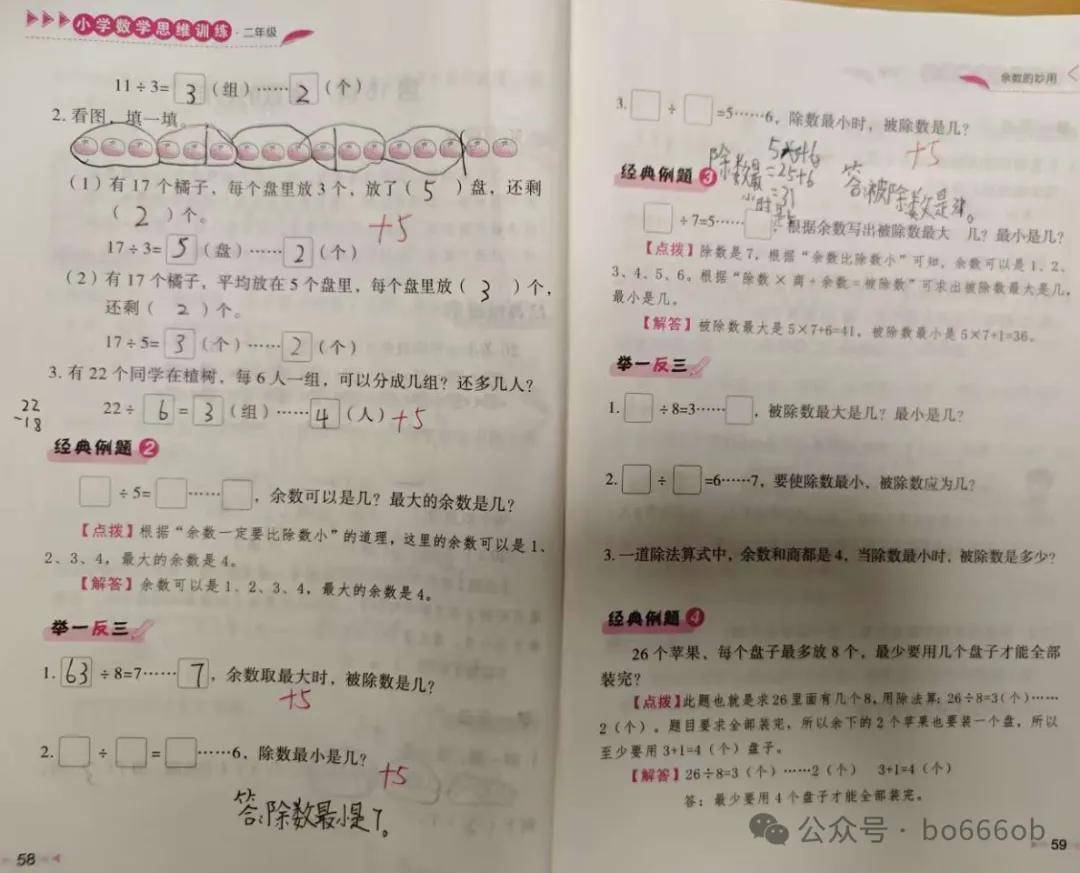 小学数学思维训练·二年级
11÷3=3(组)……2(个)
2. 看图，填一填。
(1)有17个橘子，每个盘里放3个，放了(5)盘，还剩
(2)个。
+5
17÷3=5(盘)……2(个)
(2)有17个橘子，平均放在5个盘里，每个盘里放(3)个，
还剩(2)个。
17÷5=3(个)……2(个)
3. 有22个同学在植树，每6人一组，可以分成几组？还多几人？
22
-18
22÷6=3(组)……4(人)
+5
经典例题2
÷5=……，余数可以是几？最大的余数是几？
【点拨】根据“余数一定要比除数小”的道理，这里的余数可以是1、
2、3、4，最大的余数是4。
【解答】余数可以是1、2、3、4，最大的余数是4。
举一反三
1. 63÷8=7……7，余数取最大时，被除数是几？
+5
2. ÷=……6，除数最小是几？
+5
答:除数最小是7。
58
余数的妙用
3. ÷=5……6，除数最小时，被除数是几？
+5
除数最
小时是
=25+6
=31
答:被除数是
经典例题3
÷7=5……，根据余数写出被除数最大 几？最小是几？
【点拨】除数是7，根据“余数比除数小”可知，余数可以是1、2、
3、4、5、6。根据“除数×商+余数=被除数”可求出被除数最大是几，
最小是几。
【解答】被除数最大是5×7+6=41，被除数最小是5×7+1=36。
举一反三
1. ÷8=3……，被除数最大是几？最小是几？
2. ÷=6……7，要使除数最小，被除数应为几？
3. 一道除法算式中，余数和商都是4，当除数最小时，被除数是多少？
经典例题4
26个苹果，每个盘子最多放8个，最少要用几个盘子才能全部
装完？
【点拨】此题也就是求26里面有几个8，用除法算：26÷8=3(个)……
2(个)。题目要求全部装完，所以余下的2个苹果也要装一个盘，所以
至少要用3+1=4(个)盘子。
【解答】26÷8=3(个)……2(个) 3+1=4(个)
答：最少要用4个盘子才能全部装完。
公众号·bo666ob
59